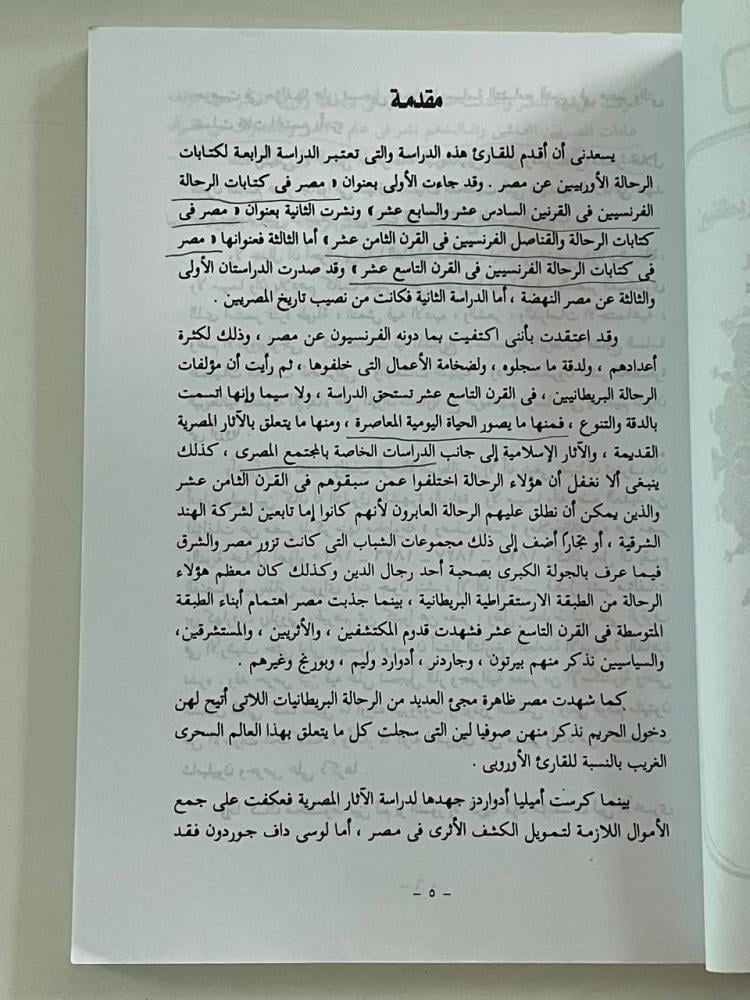 مقدمة
يسعدنى أن أقدم للقارئ هذه الدراسة والتى تعتبر الدراسة الرابعة لكتابات
الرحالة الأوربيين عن مصر . وقد جاءت الأولى بعنوان « مصر فى كتابات الرحالة
الفرنسيين فى القرنين السادس عشر والسابع عشر » ونشرت الثانية بعنوان « مصر فى
كتابات الرحالة والقناصل الفرنسيين فى القرن الثامن عشر » أما الثالثة فعنوانها « مصر
فى كتابات الرحالة الفرنسيين فى القرن التاسع عشر » وقد صدرت الدراستان الأولى
والثالثة عن مصر النهضة ، أما الدراسة الثانية فكانت من نصيب تاريخ المصريين .
وقد اعتقدت بأننى اكتفيت بما دونه الفرنسيون عن مصر ، وذلك لكثرة
أعدادهم ، ولدقة ما سجلوه ، ولضخامة الأعمال التى خلفوها ، ثم رأيت أن مؤلفات
الرحالة البريطانيين ، فى القرن التاسع عشر تستحق الدراسة ، ولا سيما وإنها اتسمت
بالدقة والتنوع ، فمنها ما يصور الحياة اليومية المعاصرة ، ومنها ما يتعلق بالآثار المصرية
القديمة ، والآثار الإسلامية إلى جانب الدراسات الخاصة بالمجتمع المصرى ، كذلك
ينبغى ألا نغفل أن هؤلاء الرحالة اختلفوا عمن سبقوهم فى القرن الثامن عشر
والذين يمكن أن نطلق عليهم الرحالة العابرون لأنهم كانوا إما تابعين لشركة الهند
الشرقية ، أو تجارًا أضف إلى ذلك مجموعات الشباب التى كانت تزور مصر والشرق
فيما عرف بالجولة الكبرى بصحبة أحد رجال الدين وكذلك كان معظم هؤلاء
الرحالة من الطبقة الارستقراطية البريطانية ، بينما جذبت مصر اهتمام أبناء الطبقة
المتوسطة فى القرن التاسع عشر فشهدت قدوم المكتشفين ، والأثريين ، والمستشرقين ،
والسياسيين نذكر منهم بيرتون ، وجاردنر ، أدوارد وليم ، وبورنج وغيرهم .
كما شهدت مصر ظاهرة مجئ العديد من الرحالة البريطانيات اللاتى أتيح لهن
دخول الحريم نذكر منهن صوفيا لين التى سجلت كل ما يتعلق بهذا العالم السحرى
الغريب بالنسبة للقارئ الأوروبى .
بينما كرست أميليا أدواردز جهدها لدراسة الآثار المصرية فعكفت على جمع
الأموال اللازمة لتمويل الكشف الأثرى فى مصر ، أما لوسى داف جوردون فقد
- ٥ -